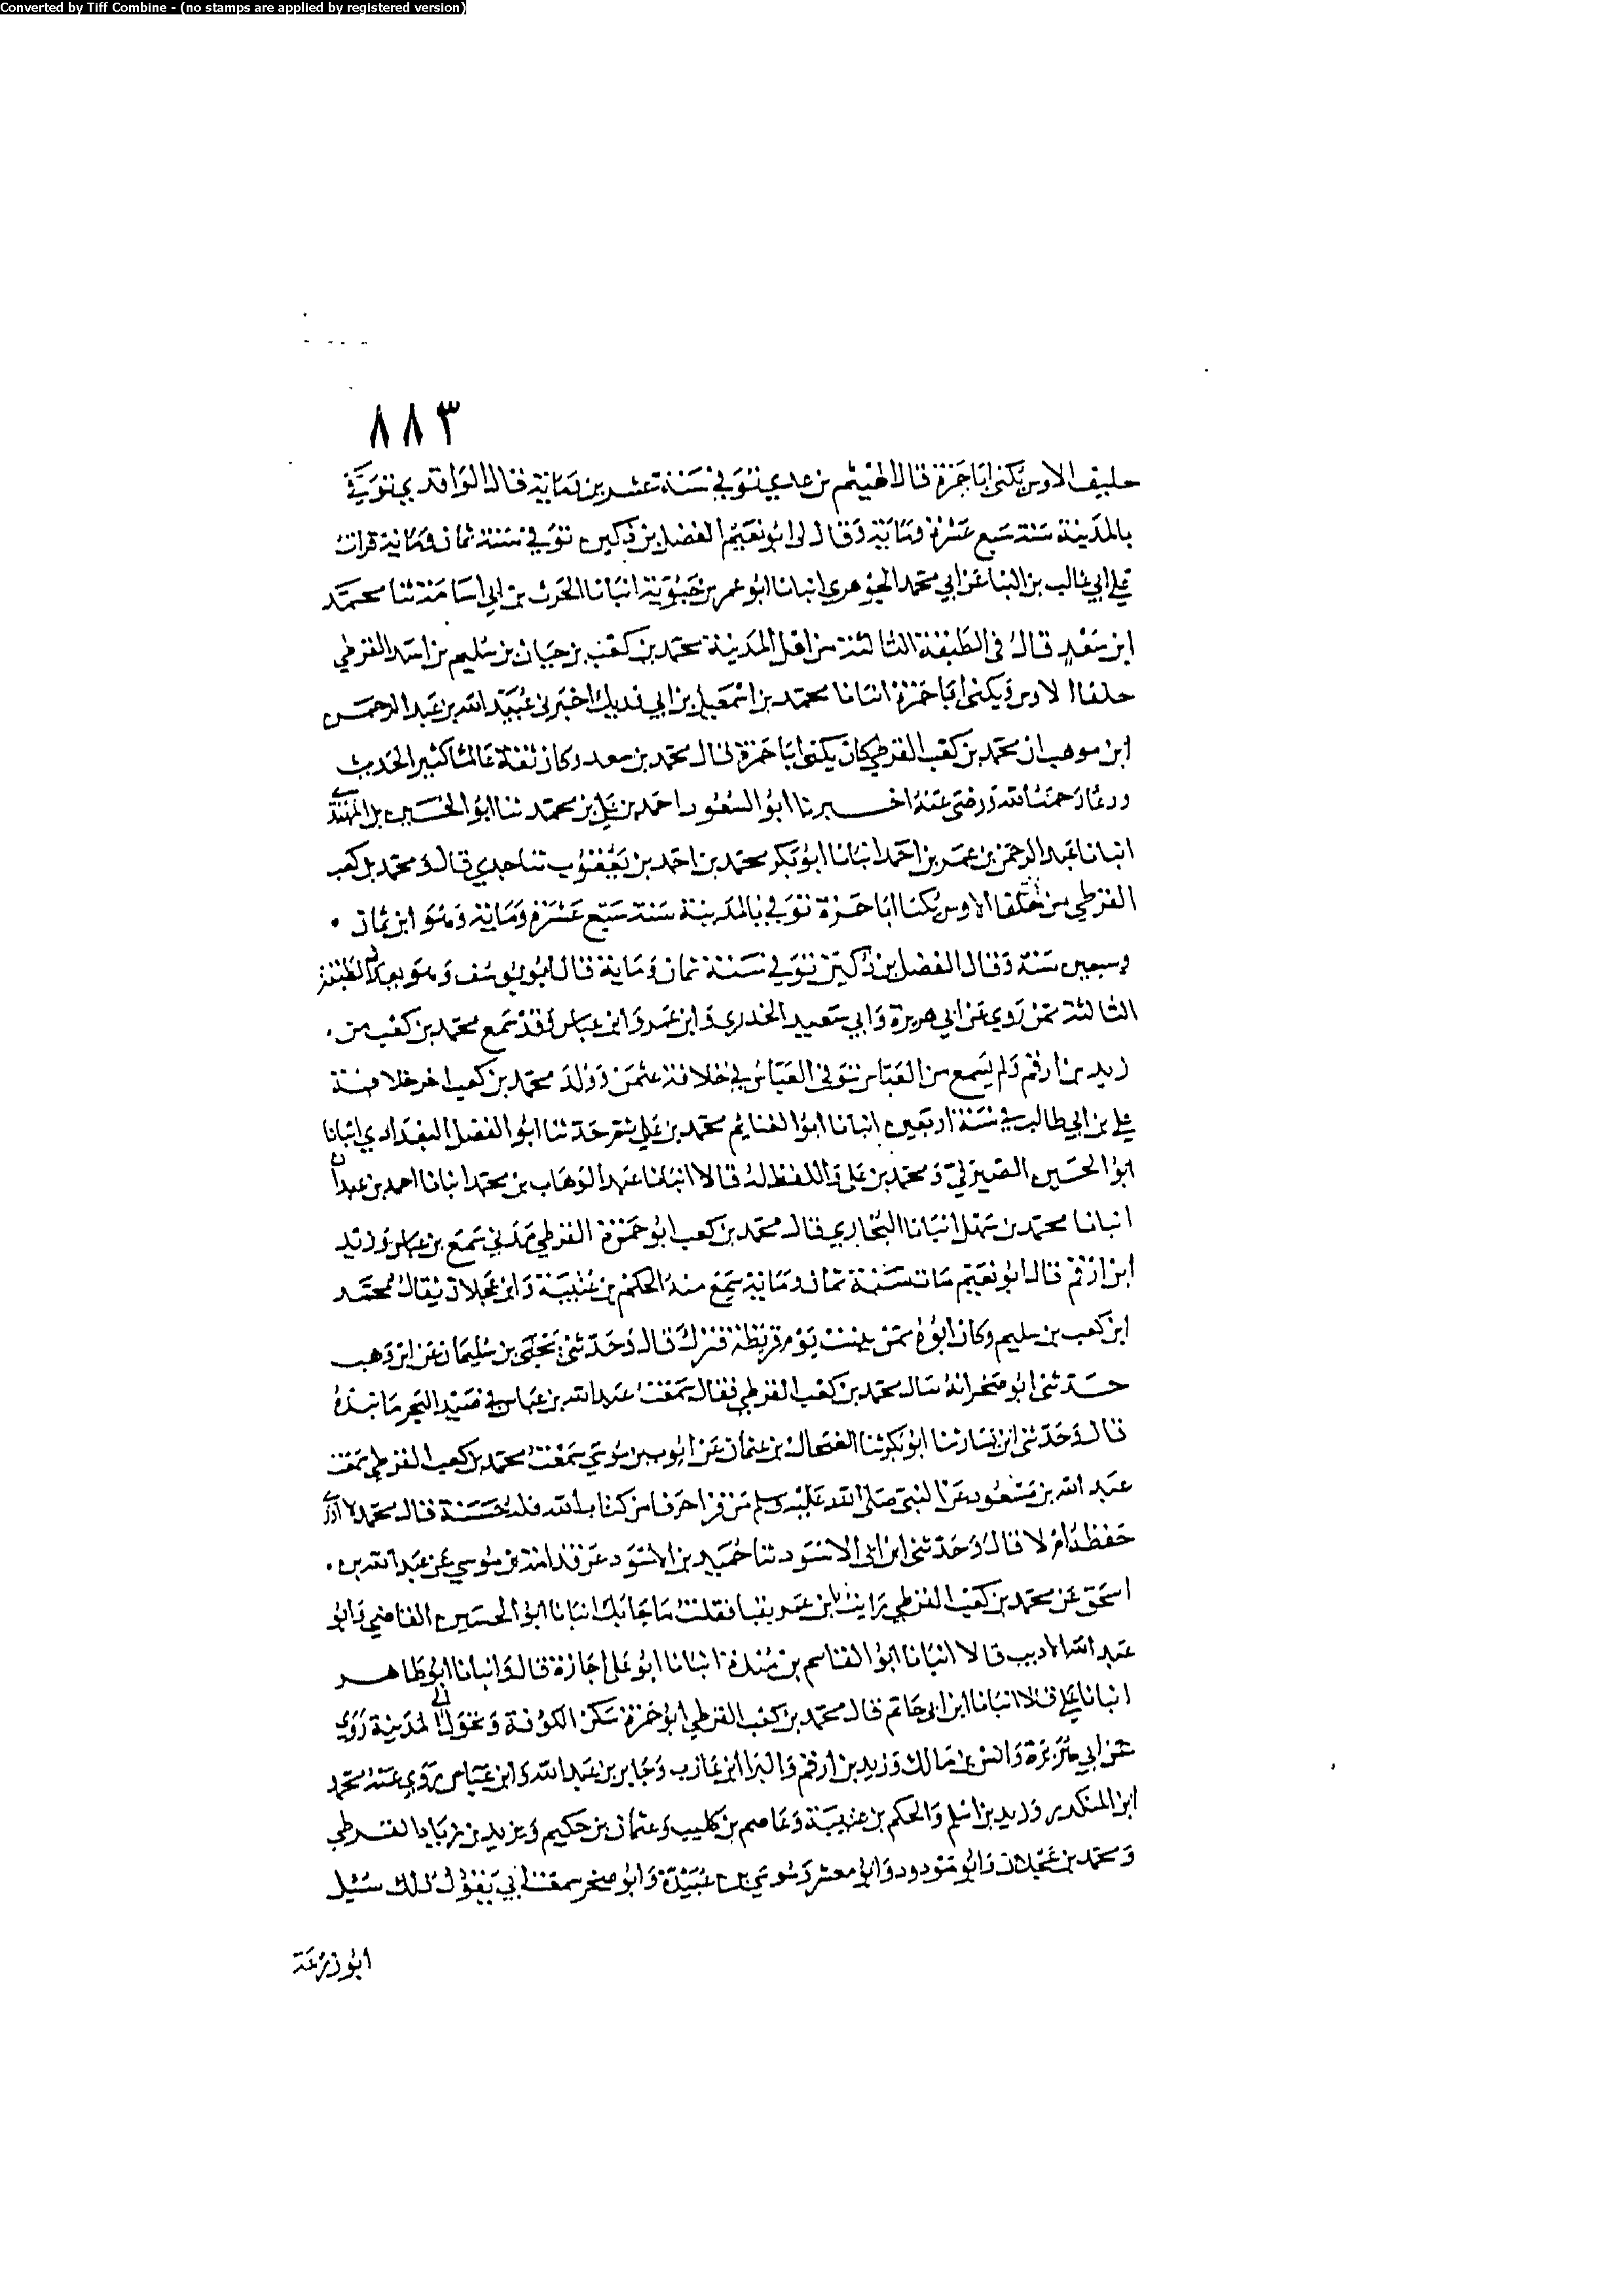 Converted by Tiff Combine - (no stamps are applied by registered version)
٨٨٣
حليف الاوس يكنى ابا حمزة قال الهيثم بن عدي توفي سنة عشرين ومائة قال الواقدي توفي
بالمدينة سنة سبع عشرة ومائة وقال لي ابو نعيم الفضل بن دكين توفي سنة ثمان ومائة قرات
على ابي غالب بن البنا عن ابي محمد الجوهري انبانا ابو عمر بن حيويه انبانا الحرث بن ابي اسامة ثنا محمد
ابن سعد قال في الطبقة الثالثة من اهل المدينة محمد بن كعب بن حيان بن سليم بن اسد القرظي
حلفا الاوس ويكنى ابا حمزة انبانا محمد بن اسمعيل بن ابي فديك اخبرني عبيد الله بن عبد الرحمن
ابن موهب ان محمد بن كعب القرظي كان يكنى ابا حمزة قال محمد بن سعد وكان ثقة عالما كثير الحديث
ورعا رحمة الله ورضي عنه اخبرنا ابو السعود احمد بن علي بن محمد ثنا ابو الحسين بن المهتدي
انبانا عبد الرحمن بن عمر بن احمد انبانا ابو بكر محمد بن احمد بن يعقوب ثنا جدي قال ومحمد بن كعب
القرظي من حلفا الاوس يكنا ابا حمزة توفي بالمدينة سنة سبع عشرة ومائة وهو ابن ثمان
وسبعين سنة وقال الفضل بن دكين توفي سنة ثمان ومائة قال ابو يوسف وهو يعد في الطبقة
الثالثة ممن روى عن ابي هريرة وابي سعيد الخدري وابن عمر وابن عباس وقد سمع محمد بن كعب من
زيد بن ارقم ولم يسمع من العباس توفي العباس في خلافة عثمن وولد محمد بن كعب اخر خلافة
علي بن ابي طالب في سنة اربعين انبانا ابو الغنايم محمد بن علي ثم حدثنا ابو الفضل البغدادي انبانا
ابو الحسين الصيرفي ومحمد بن علي واللفظ له قالا انبانا عبد الوهاب بن محمد انبانا احمد بن عبدان
انبانا محمد بن سهل انبانا البخاري قال محمد بن كعب ابو حمزة القرظي مدني سمع بن عباس وزيد
ابن ارقم قال ابو نعيم مات سنة ثمان ومائة سمع منه الحكم بن عتيبة وابن عجلان يقال محمد
ابن كعب بن سليم وكان ابوه ممن لم ينبت يوم قريظة فترك قال وحدثني يحيى بن سليمان عن ابن وهب
حدثني ابو صخر انه سال محمد بن كعب القرظي فقال سمعت عبد الله بن عباس في صيد البحر ما نبذه
قال وحدثني ابن بشار ثنا ابو بكر ثنا الضحاك بن عثمان عن ايوب بن موسى سمعت محمد بن كعب القرظي سمعت
عبد الله بن مسعود عن النبي صلى الله عليه وسلم من قرا حرفا من كتاب الله فله حسنة قال محمد لا ادري
حفظه ام لا قال وحدثني ابن ابي الاسود ثنا حميد بن الاسود عن قدامة بن موسي عن عبد الله بن
اسحق عن محمد بن كعب القرظي رايت ابن عمر بقبا فقلت ما جا بك انبانا ابو الحسين القاضي وابو
عبد الله الاديب قالا انبانا ابو القاسم بن مندة انبانا ابو علي اجازة قال وانبانا ابو طاهر
انبانا علي قالا انبانا ابن ابي حاتم قال محمد بن كعب القرظي ابو حمزة سكن الكوفة وتحول الى المدينة روى
عن ابي هريرة وانس بن مالك وزيد بن ارقم والبرا ابن عازب وجابر بن عبد الله وابن عباس روى عنه محمد
ابن المنكدر وزيد بن اسلم والحكم بن عتيبة وعاصم بن كليب وعثمان بن حكيم ويزيد بن زياد القرظي
ومحمد بن عجلان وابو مودود وابو معشر وموسى بن عبيدة وابو صخر سمعت ابي يقول ذلك سئل
ابو زرعة